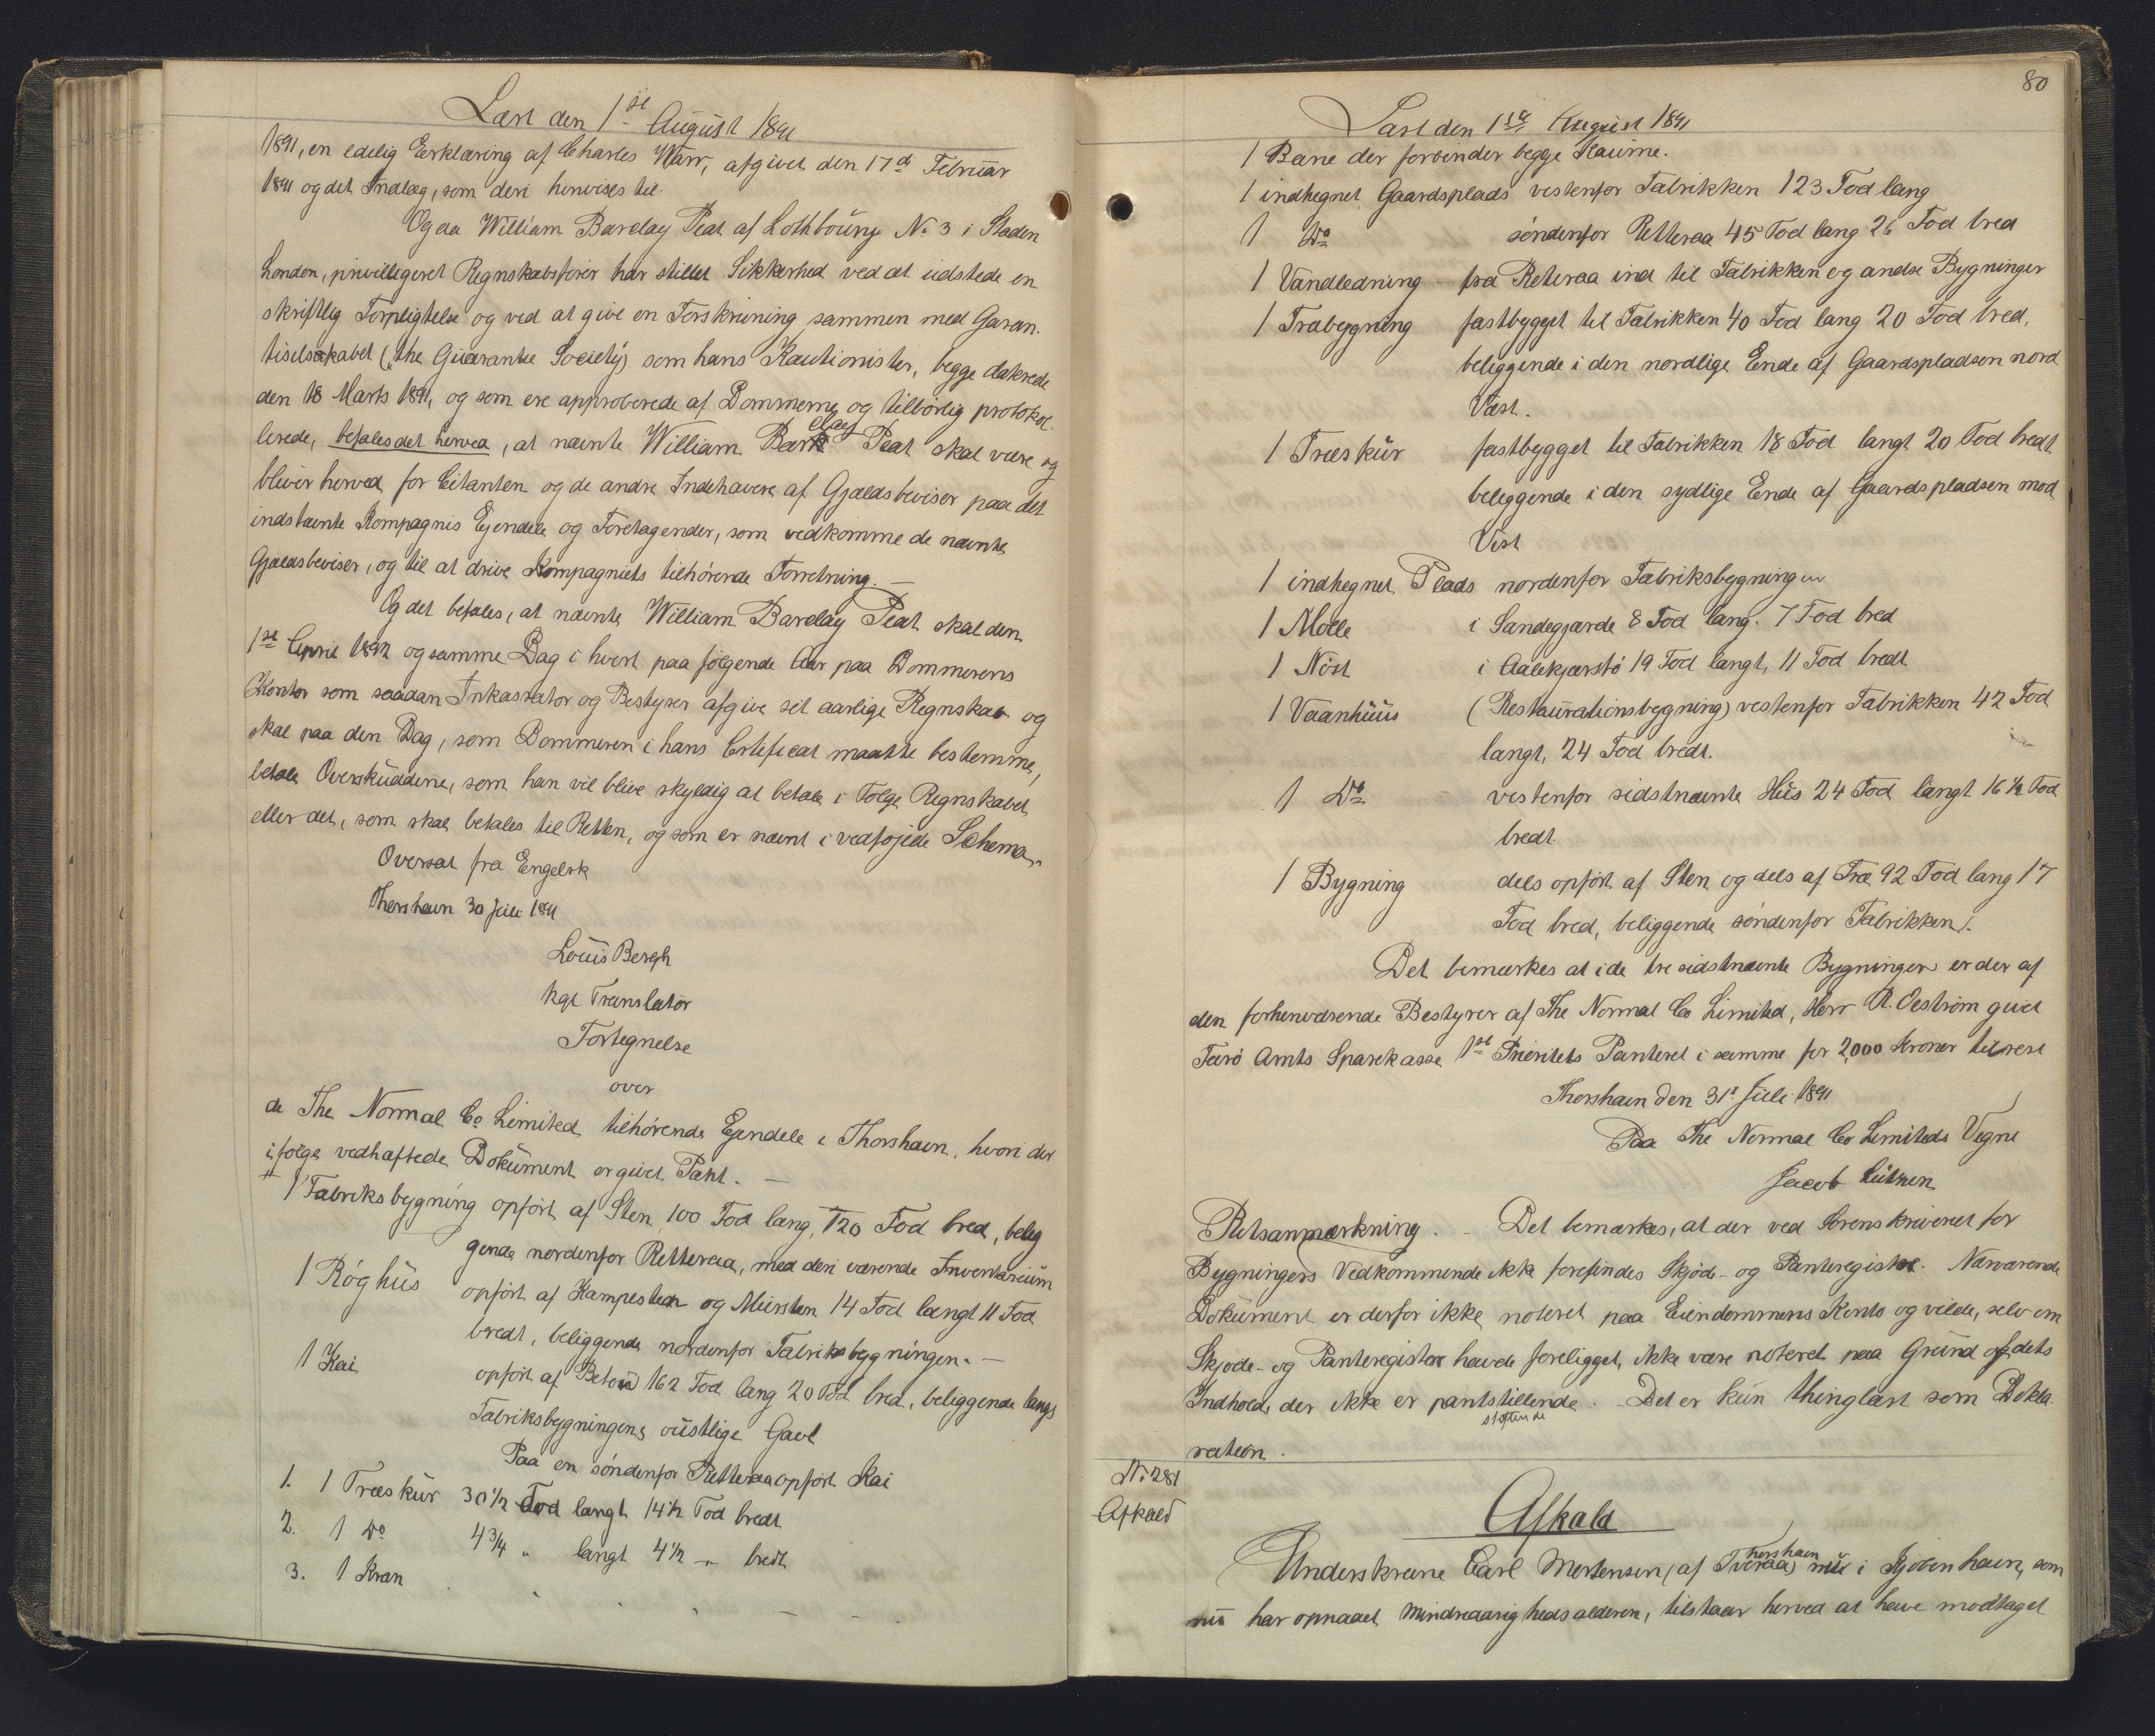 Læst den 1ste August 1891
1891, en edelig Eerklæring af Charles Warr, afgivet den 17de Februar
1891 og det Indlæg, som deri henvises til.
Og da William Barclay Peat af Lothboury No. 3 i Staden
London, priviligeret Regnskabsfører har stillet Sikkerhed ved at udstede en
skriftlig Forpligtelse og ved at give en Forskrivning sammen med Garan-
tiselskabet („the Guarantee Society") som hans Kautionister, begge daterede
den 18 Marts 1891, og som ere approberede af Dommerne og tilbørlig protokol-
lerede, befales det herved, at nævnte William Barclay Peat skal være og
bliver herved for Citanten og de andre Indehavere af Gjældsbeviser paa det
indstævnte Kompagnis Ejendele og Foretagender, som vedkomme de nævnte
Gjældsbeviser, og til at drive Kompagniets tilhørende Forretning. —
Og det befales, at nævnte William Barclay Peat skal den
1ste April 1892 og samme Dag i hvert paa følgende Aar paa Dommerens
Kontor som saadan Inkassator og Bestyrer afgive sit aarlige Regnskab og
skal paa den Dag, som Dommeren i hans Certificat maatte bestemme,
betale Overskuddene, som han vil blive skyldig at betale i Følge Regnskabet
eller det, som skal betales til Retten, og som er nævnt i vedføjede Schema.
Oversat fra Engelsk
Thorshavn 30 Juli 1891
Louis Bergh
kgl Translatør
Fortegnelse
over
de The Normal Co Limited tilhørende Ejendele i Thorshavn, hvori der
ifølge vedhæftede Dokument er givet Pant. —
1 Fabriksbygning opført af Sten 100 Fod lang, 120 Fod bred, belig
gende nordenfor Retteraa, med deri værende Inventarium
1 Røghus opført af Kampesten og Mursten 14 Fod langt 11 Fod
bredt, beliggende nordenfor Fabriksbygningen. —
1 Kai opført af Beton 162 Fod lang 20 Fod bred, beliggende langs
Fabriksbygningens østlige Gavl
Paa en søndenfor Retteraa opført Kai
1. 1 Træskur 30 1/2 Fod langt 14 1/2 Fod bredt
2. 1 Do 4 3/4 " langt 4 1/2 " bredt
3. 1 Kran
80
Læst den 1ste August 1891
1 Bane der forbinder begge Skurene.
1 indhegnet Gaardsplads vestenfor Fabrikken 123 Fod lang
1 Do søndenfor Retteraa 45 Fod lang 26 Fod bred
1 Vandledning fra Reteraa ind til Fabrikken og andre Bygninger
1 Træbygning fastbygget til Fabrikken 40 Fod lang 20 Fod bred,
beliggende i den nordlige Ende af Gaardspladsen nord
Vest.
1 Træskur fastbygget til Fabrikken 18 Fod langt 20 Fod bredt
beliggende i den sydlige Ende af Gaardspladsen mod
Vest
1 indhegnet Plads nordenfor Fabriksbygningen
1 Mølle i Sandegjærde 8 Fod lang. 7 Fod bred
1 Nøst i Aalekjærstø 19 Fod langt, 11 Fod bredt
1 Vaanhuus (Restaurationsbygning) vestenfor Fabrikken 42 Fod
langt, 24 Fod bredt.
1 Do vestenfor sidstnævnte Hus 24 Fod langt 16 1/2 Fod
bredt.
1 Bygning dels opført af Sten og dels af Træ 92 Fod lang 17
Fod bred, beliggende søndenfor Fabrikken.
Det bemærkes at i de tre sidstnævnte Bygninger er der af
den forhenværende Bestyrer af The Normal Co Limited, Herr A. Oestrøm givet
Færø Amts Sparekasse 1ste Prioritets Panteret i samme for 2,000 Kroner tilrest
Thorshavn den 31te Juli 1891
Paa The Normal Co Limiteds Vegne
Jacob Lützen
Retsanmærkning. - Det bemærkes, at der ved Sorenskriveriet for
Bygningers Vedkommende ikke forefindes Skjøde- og Panteregister. Nærværende
Dokument er derfor ikke noteret paa Eiendommens Konto og vilde, selv om
Skjøde- og Panteregister havde foreligget, ikke være noteret paa Grund af dets
Indhold, der ikke er pantstillende. - Det er kun thinglæst som Dekla-
ration.
No. 281
Afkald
Afkald
Underskrevne Carl Mortensen (af Tveraa) Thorshavn nu i Kjøbenhavn, som
nu har opnaaet Mindreaarighedsalderen, tilstaar herved at have modtaget